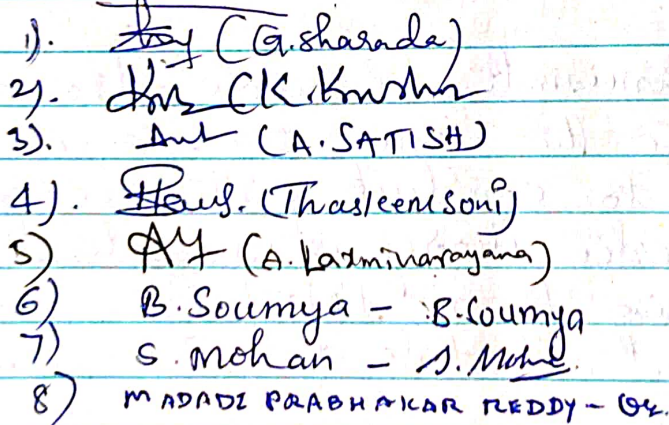 1). (G.sharada)
2). (K.Krushna
3). (A.SATISH)
4). (Thasleem soni)
5) (A. Laxminarayana)
6) B.Soumya - B.Soumya
7) S. mohan - S.Mohan
8) MADADI PRABHAKAR REDDY -